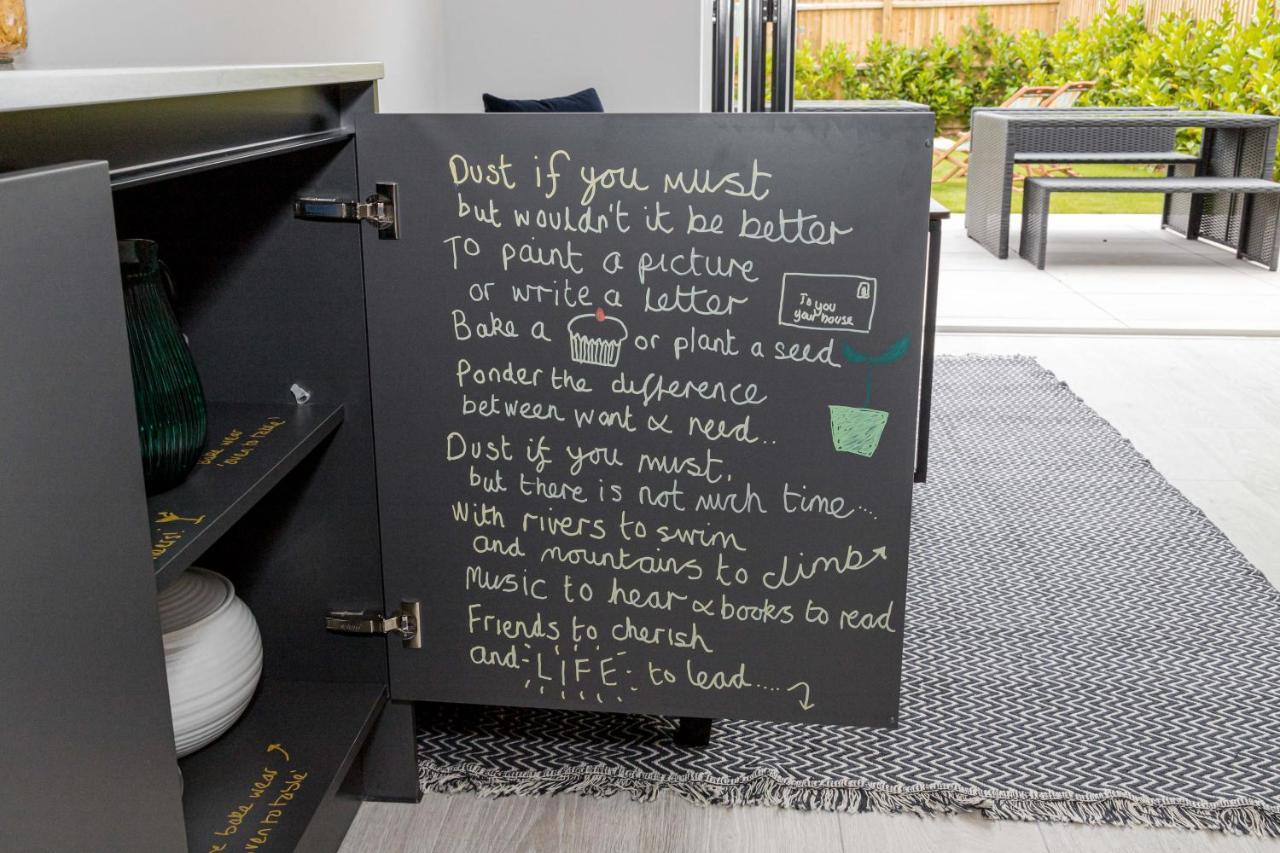 Dust if you must
but wouldn't it be better
To paint a picture
or write a letter
To you
your house
Bake a or plant a seed
Ponder the difference
between want & need..
Dust if you must,
but there is not much time...
With rivers to swim
and mountains to climb
Music to hear & books to read
Friends to cherish
and LIFE to lead....
bake wear
'oven to table'
bake wear
oven to table'